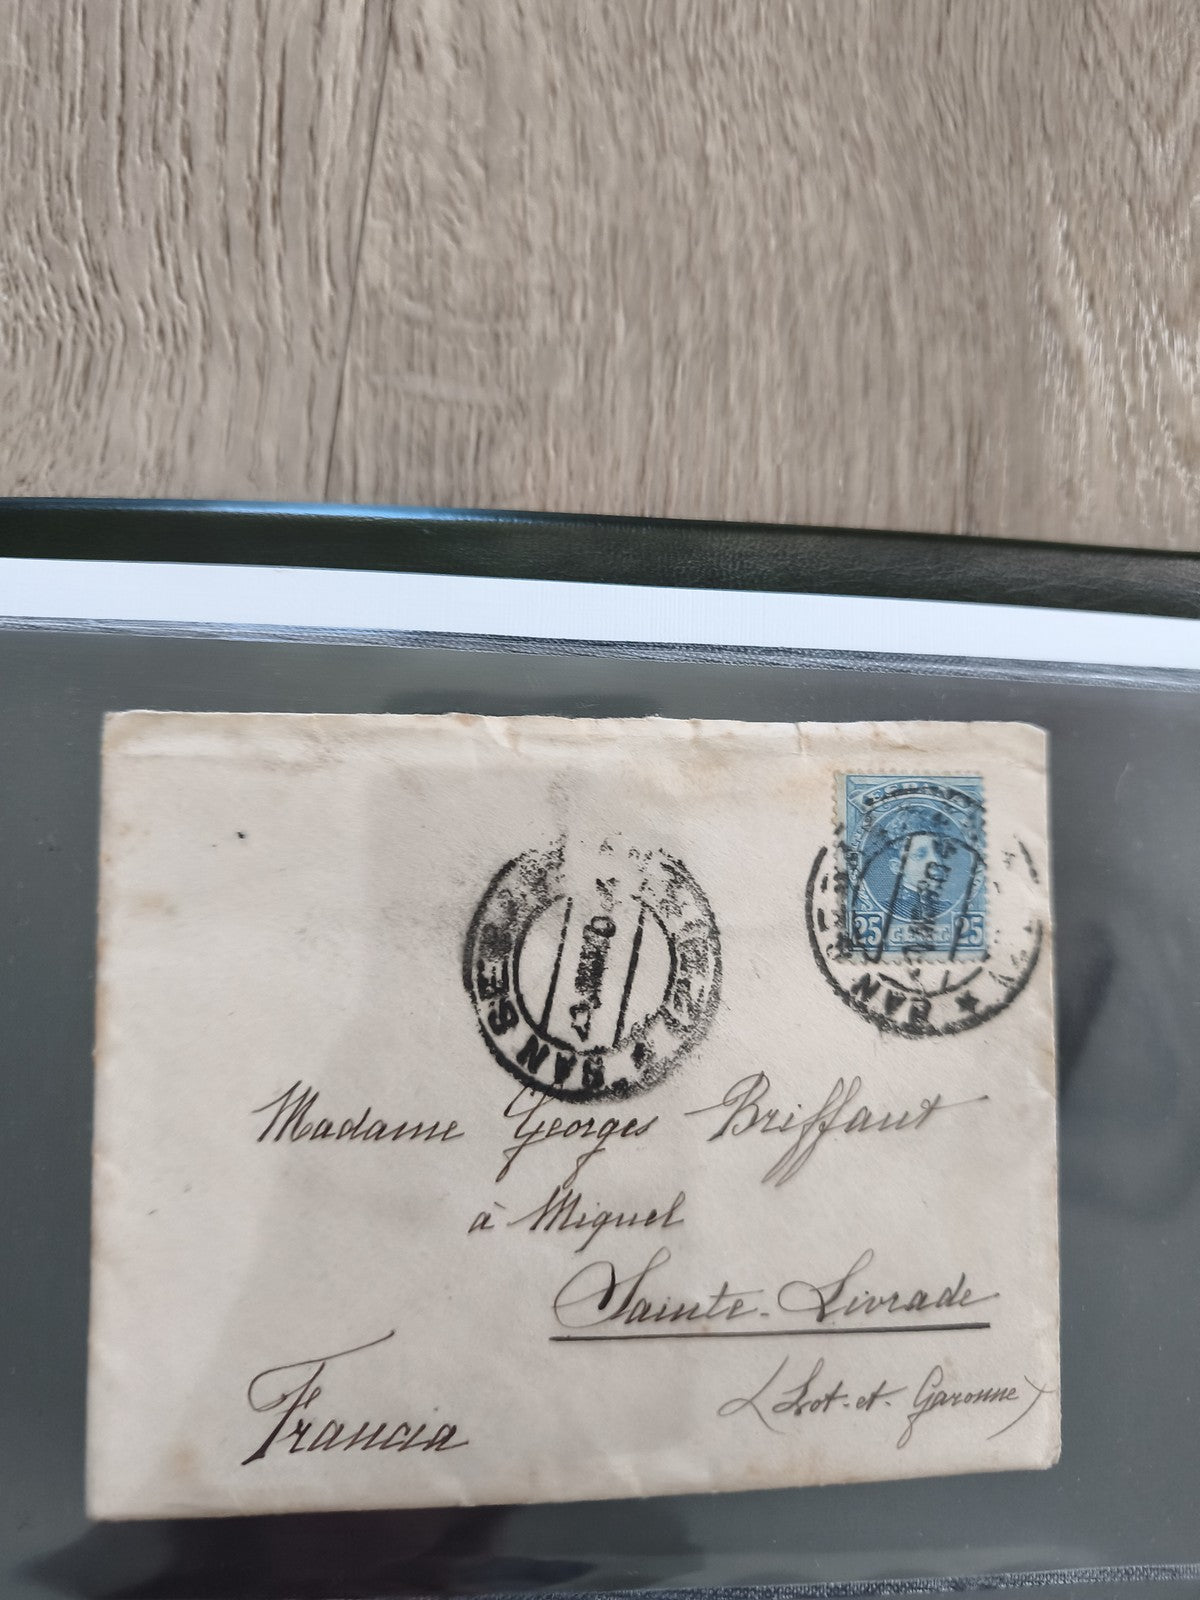 25 25
SAN SE
SAN
Madame Georges Briffaut
à Miquel
Sainte-Livrade
(Lot-et-Garonne)
Francia